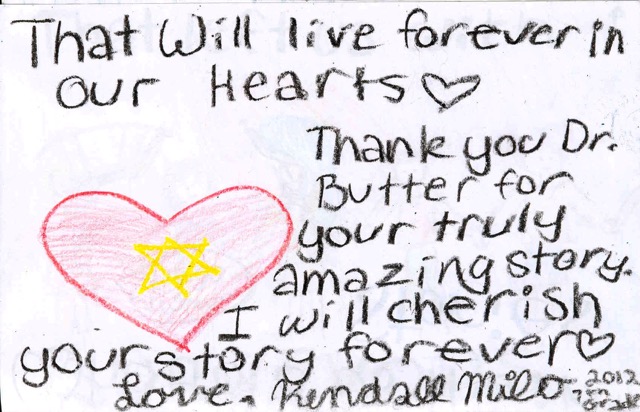 That Will live forever in
our Hearts
Thank you Dr.
Butter for
your truly
amazing story.
I will cherish
your story forever
Love, Kendall Milo 2012